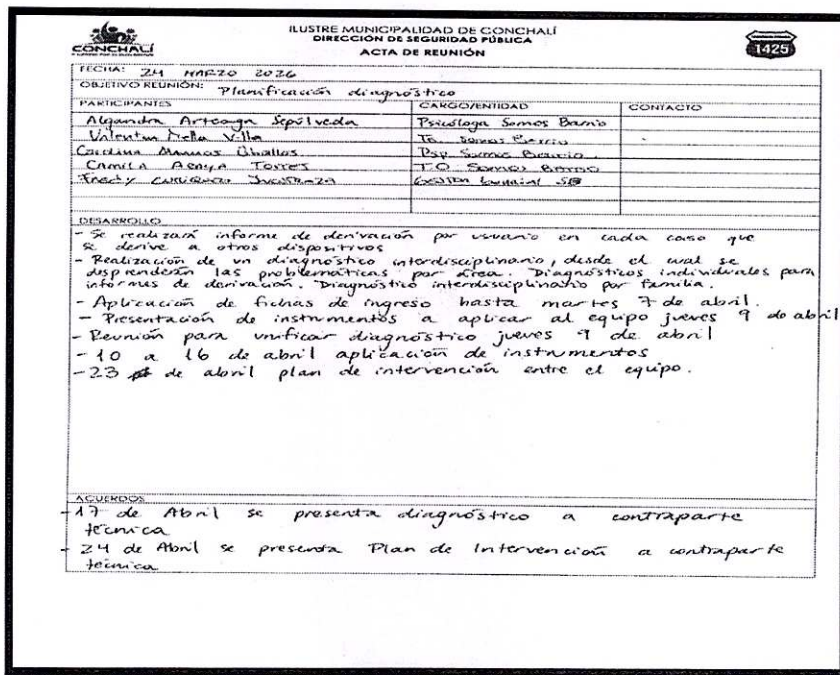 ILUSTRE MUNICIPALIDAD DE CONCHALÍ
DIRECCIÓN DE SEGURIDAD PÚBLICA
ACTA DE REUNIÓN
CONCHALÍ
1425
FECHA: 24 MARZO 2026
OBJETIVO REUNIÓN: Planificación diagnóstico
PARTICIPANTES CARGO/ENTIDAD CONTACTO
Alejandra Arteaga Sepúlveda Psicóloga Somos Barrio
Valentina Mella Villa To. Somos Barrio
Carolina Psp. Somos Barrio
Camila Araya Torres T.O Somos Barrio
Fredy Gestor
DESARROLLO
- Se realizará informe de derivación por usuario en cada caso que
se derive a otros dispositivos
- Realización de un diagnóstico interdisciplinario, desde el cual se
desprenderán las problemáticas por área. Diagnósticos individuales para
informes de derivación. Diagnóstico interdisciplinario por familia.
- Aplicación de fichas de ingreso hasta martes 7 de abril.
- Presentación de instrumentos a aplicar al equipo jueves 9 de abril
- Reunión para unificar diagnóstico jueves 9 de abril
- 10 a 16 de abril aplicación de instrumentos
- 23 de abril plan de intervención entre el equipo.
ACUERDOS
- 17 de Abril se presenta diagnóstico a contraparte
técnica
- 24 de Abril se presenta Plan de Intervención a contraparte
técnica